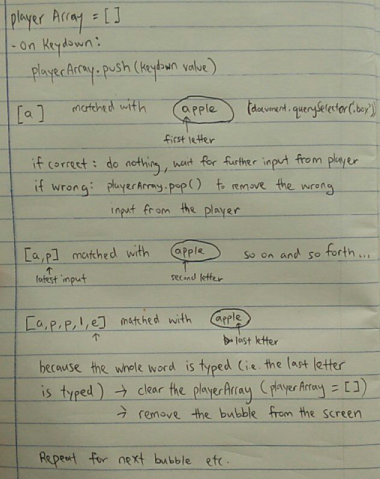 player Array = [ ]
- On Keydown:
playerArray.push (keydown value)
[a] matched with apple (document.querySelector('.box'))
first letter
if correct : do nothing, wait for further input from player
if wrong: playerArray.pop() to remove the wrong
input from the player
[a,p] matched with apple so on and so forth...
latest input second letter
[a,p,p,l,e] matched with apple
last letter
because the whole word is typed (i.e. the last letter
is typed) → clear the playerArray (playerArray = [ ])
→ remove the bubble from the screen
Repeat for next bubble etc.